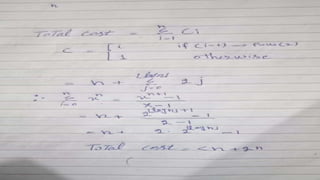 n
Total cost = n Σ i=1 Ci
C = { i if (i-1) → Power(2)
1 otherwise
= n + ⌊logn⌋ Σ j=0 2 j
∴ n Σ i=0 x^n = x^{n+1} - 1 / x - 1
= n + 2^{⌊logn⌋+1} - 1 / 2 - 1
= n + 2 . 2^{⌊logn⌋} - 1
Total cost = < n + 2n
(